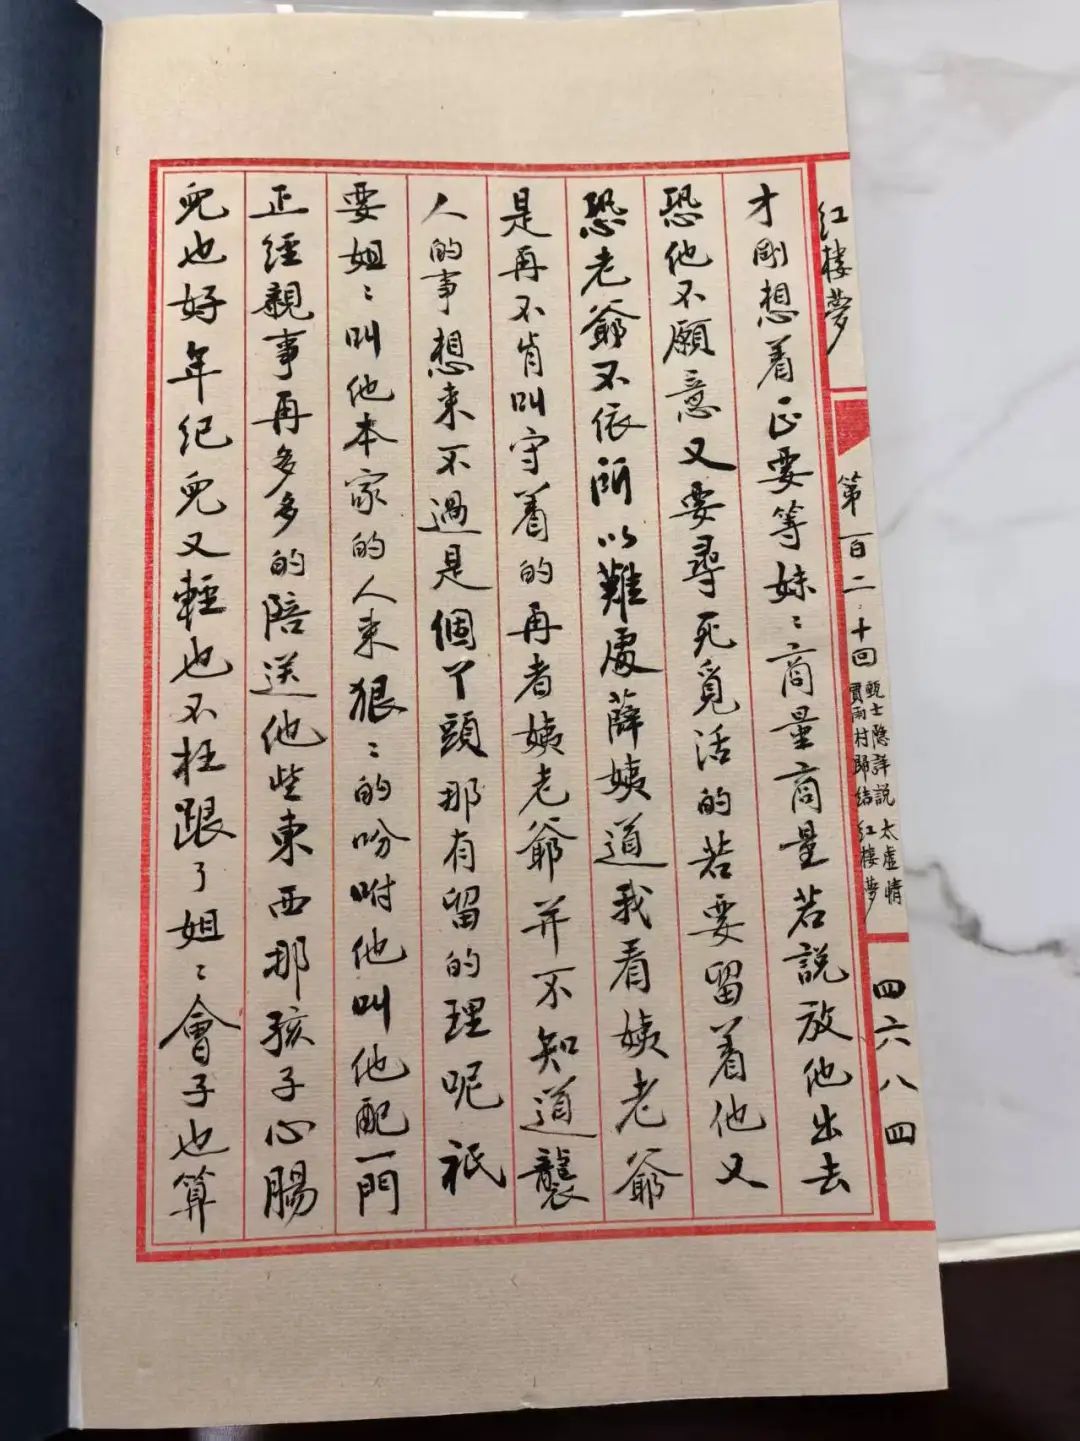 红楼夢
第一百二十回
甄士隐詳説太虚情
賈雨村歸结红楼夢
四六八四
才剛想着正要等妹〻商量商量若説放他出去
恐他不願意又要尋死覓活的若要留着他又
恐老爺不依所以難處薛姨道我看姨老爺
是再不肯叫守着的再者姨老爺并不知道襲
人的事想来不過是個丫頭那有留的理呢祇
要姐〻叫他本家的人来狠〻的吩咐他叫他配一門
正經親事再多多的陪送他些東西那孩子心腸
兒也好年纪兒又輕也不枉跟了姐〻會子也算